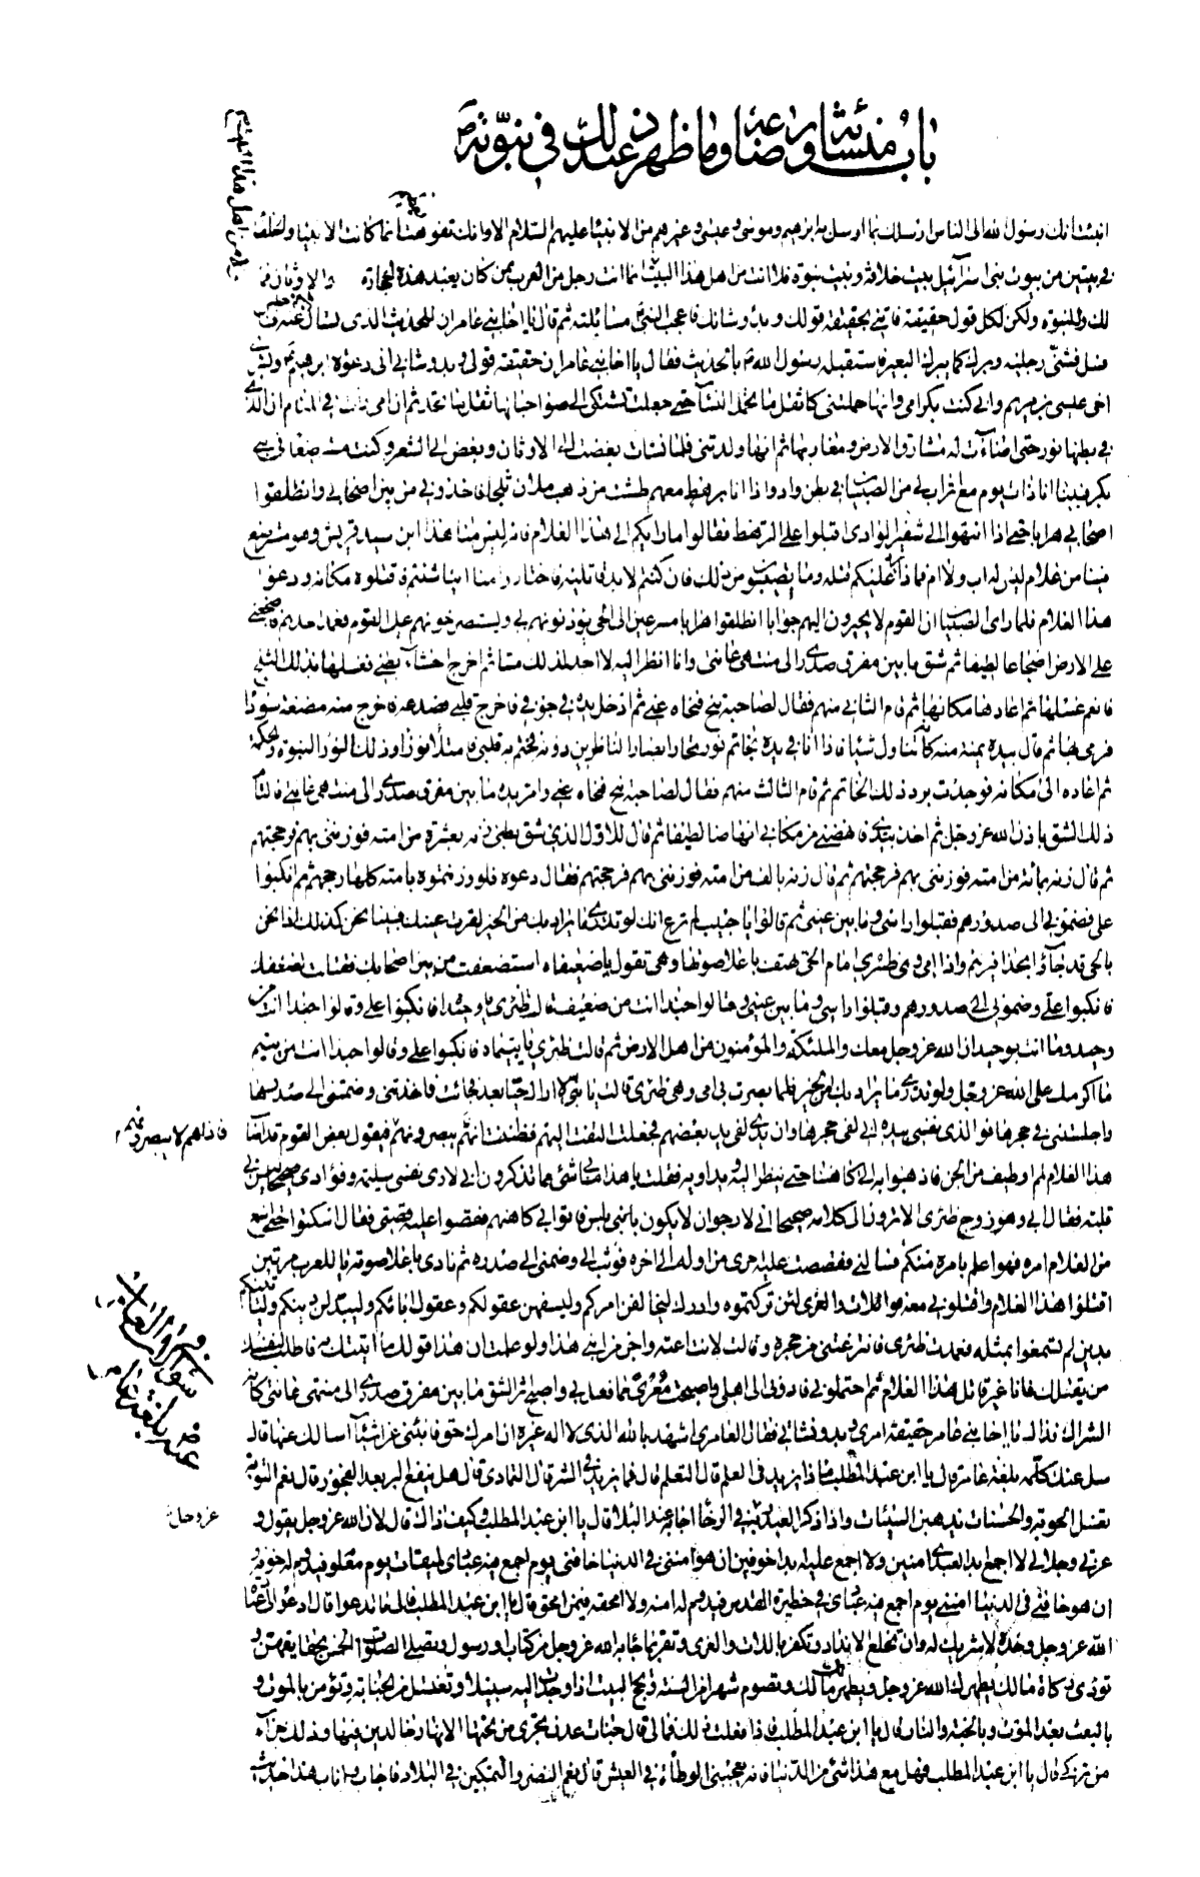 باب منشائه ورضاعه وما ظهر من ذلك في نبوته
انبئت انك رسول الله الى الناس ارسلك بما ارسل به ابرهيم وموسى وعيسى وغيرهم من الانبياء عليهم السلام الا وانك تفوهت انما كانت الانبياء والخلفاء
في بيتين من بيوت بني اسرائيل بيت خلافة وبيت نبوة فلا انت من اهل هذا البيت انما انت رجل من العرب ممن كان يعبد هذه الحجارة والاوثان فما
لك وللنبوة ولكن لكل قول حقيقة فاتني بحقيقة قولك وبدو شانك فاعجب النبي مسايلته ثم قال يا اخا بني عامر ان للحديث الذي تسال عنه
فثنى رجليه وبرك كما يبرك البعير فاستقبله رسول الله بالحديث فقال يا اخا بني عامر ان حقيقة قولي وبدو شاني اني دعوة ابرهيم وبشرى
اخي عيسى بن مريم واني كنت بكر امي وانها حملتني كاثقل ما تحمل النسا حتى جعلت تشتكي الى صواحباتها ثقل ما تجد ثم ان امي رات في المنام ان الذي
في بطنها نور حتى اضاءت له مشارق الارض ومغاربها ثم انها ولدتني فلما نشات بغضت الي الاوثان وبغض الي الشعر وكنت مسترضعا في بني
بكر فبينا انا ذات يوم مع اتراب لي من الصبيان في بطن واد واذا انا برهط معهم طشت من ذهب ملان ثلجا فاخذوني من بين اصحابي وانطلقوا
اصحابي هرابا حتى اذا انتهوا الى شفير الوادي اقبلوا على الرهط فقالوا ما رابكم الى هذا الغلام فانه ليس منا هذا ابن سيد قريش وهو مسترضع
فينا من غلام ليس له اب ولا ام فماذا عليكم قتله وما يصيبون من ذلك فان كنتم لا بد قاتليه فاختاروا منا اينا شئتم فاقتلوه مكانه ودعوا
هذا الغلام فلما راى الصبيان ان القوم لا يحيرون اليهم جوابا انطلقوا هرابا مسرعين الى الحي يؤذنونهم بي ويستصرخونهم على القوم فعمد احدهم فاضجعني
على الارض اضجاعا لطيفا ثم شق ما بين مفرق صدري الى منتهى عانتي وانا انظر اليه لا اجد لذلك مسا ثم اخرج احشاء بطني فغسلها بذلك الثلج
فانعم غسلها ثم اعادها مكانها ثم قام الثاني منهم فقال لصاحبه تنح فنحاه عني ثم ادخل يده في جوفي فاخرج قلبي فصدعه فاخرج منه مضغة سودا
فرمى بها ثم قال بيده يمنة منه كانه تناول شيئا فاذا انا في يده بخاتم نور تحار ابصار الناظرين دونه فختم به قلبي فامتلا نورا وذلك النور النبوة والحكمة
ثم اعاده الى مكانه فوجدت برد ذلك الخاتم ثم قام الثالث منهم فقال لصاحبه تنح فنحاه عني وامر يده ما بين مفرق صدري الى منتهى عانتي فالتام
ذلك الشق باذن الله عز وجل ثم اخذ بيدي فانهضني من مكاني انهاضا لطيفا ثم قال للاول الذي شق بطني زنه بعشرة من امته فوزنني بهم فرجحتهم
ثم قال زنه بمائة من امته فوزنني بهم فرجحتهم ثم قال زنه بالف من امته فوزنني بهم فرجحتهم فقال دعوه فلو وزنتموه بامته كلها رجحهم ثم انكبوا
علي فضموني الى صدورهم فقبلوا راسي وما بين عيني ثم قالوا يا حبيب لم ترع انك لو تدري ما يراد بك من الخير لقرت عينك فبينا نحن كذلك اذا نحن
بالحي قد جاؤا بحذافيرهم واذا امي وهي ظئري امام الحي تهتف باعلا صوتها وهي تقول يا ضعيفاه استضعفت من بين اصحابك فقتلت لضعفك
فانكبوا علي وضموني الى صدورهم وقبلوا راسي وما بين عيني وقالوا حبذا انت من ضعيف ثم قالت ظئري يا وحيداه فانكبوا علي وقالوا حبذا انت من
وحيد وما انت بوحيد ان الله عز وجل معك والملئكة والمؤمنون من اهل الارض ثم قالت ظئري يا يتيماه فانكبوا علي وقالوا حبذا انت من يتيم
ما اكرمك على الله عز وجل ولو تدري ما يراد بك من الخير فلما بصرت بي امي وهي ظئري قالت يا بني لا اراك حيا بعد فجائت فاخذتني وضمتني الى صدرها
واجلستني في حجرها فوالذي نفسي بيده اني لفي حجرها وان يدي لفي يد بعضهم فجعلت التفت اليهم فظننت انهم يبصرونهم فيقول بعض القوم قد اصاب
فاذاهم لا يبصرونهم
هذا الغلام لمم او طيف من الجن فاذهبوا به الى كاهننا حتى ينظر اليه ويداويه فقلت يا هذا ما بي شئ مما تذكرون اني لارى نفسي سليمة وفؤادي صحيحا ليس بي
قلبة فقال ابي وهو زوج ظئري الا ترون الى كلامه صحيحا اني لارجو ان لا يكون بابني باس فاتوا بي كاهنهم فقصوا عليه قصتي فقال اسكتوا حتى اسمع
من الغلام امره فهو اعلم بامره منكم فسالني فقصصت عليه امري من اوله الى اخره فوثب الي وضمني الى صدره ثم نادى باعلا صوته يا للعرب مرتين
اقتلوا هذا الغلام واقتلوني معه فواللات والعزى لئن تركتموه وادرك ليخالفن امركم وليسفهن عقولكم وعقول ابائكم وليبدلن دينكم ولياتينكم
بدين لم تسمعوا بمثله فعمدت ظئري فانتزعتني من حجره وقالت لانت اعته واجن من ابني هذا ولو علمت ان هذا قولك ما اتيتك به فاطلب لنفسك
من يقتلك فانا غير قاتلي هذا الغلام ثم احتملوني فادوني الى اهلي واصبحت معرى مما فعل بي واصبح اثر الشق ما بين مفرق صدري الى منتهى عانتي كانه
الشراك فذلك يا اخا بني عامر حقيقة امري وبدو شاني فقال العامري اشهد بالله الذي لا اله غيره ان امرك حق فانبئني عن اشياء اسالك عنها قال
سل عنك كلمه بلغة عامر قال يا ابن عبد المطلب ماذا يزيد في العلم قال التعلم قال فما يزيد في الشر قال التمادي قال هل ينفع البر بعد الفجور قال نعم التوبة
تغسل الحوبة والحسنات يذهبن السيئات واذا ذكر العبد ربه في الرخا اجابه عند البلا قال يا ابن عبد المطلب وكيف ذاك قال لان الله عز وجل يقول و
عز وجل
عزتي وجلالي لا اجمع ابدا لعبدي امنين ولا اجمع عليه ابدا خوفين ان هو امنني في الدنيا خافني يوم اجمع فيه عبادي لميقات يوم معلوم فيدوم له خوفه
ان هو خافني في الدنيا امنته يوم اجمع فيه عبادي في حظيرة القدس فيدوم له امنه ولا امحقه فيمن امحق قال يا ابن عبد المطلب فالى ما تدعو قال ادعو الى عبادة
الله عز وجل وحده لا شريك له وان تخلع الانداد وتكفر باللات والعزى وتقر بما جا به الله عز وجل من كتاب او رسول وتصلي الصلوات الخمس بحقايقهن و
تؤدي زكاة مالك يطهرك الله عز وجل ويطهر مالك وتصوم شهرا من السنة وتحج البيت اذا وجدت اليه سبيلا وتغتسل من الجنابة وتؤمن بالموت و
بالبعث بعد الموت وبالجنة والنار قال يا ابن عبد المطلب فاذا فعلت ذلك فمالي قال جنات عدن تجري من تحتها الانهار خالدين فيها وذلك جزاء
من تزكى قال يا ابن عبد المطلب فهل مع هذا شئ من الدنيا فانه يعجبني الوطأة في العيش قال نعم النصر والتمكين في البلاد فاجاب واناب هذا حديث